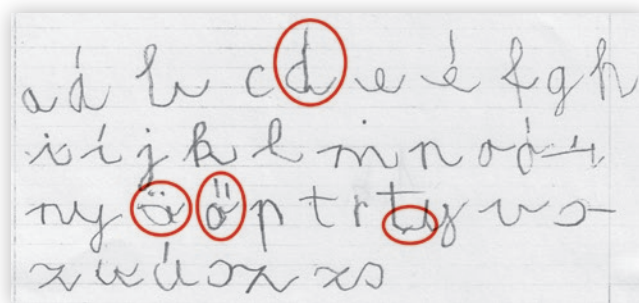 a á b c d e é f g h
i í j k l m n o ó
ny ö ő p t r ty v
z u ú sz zs